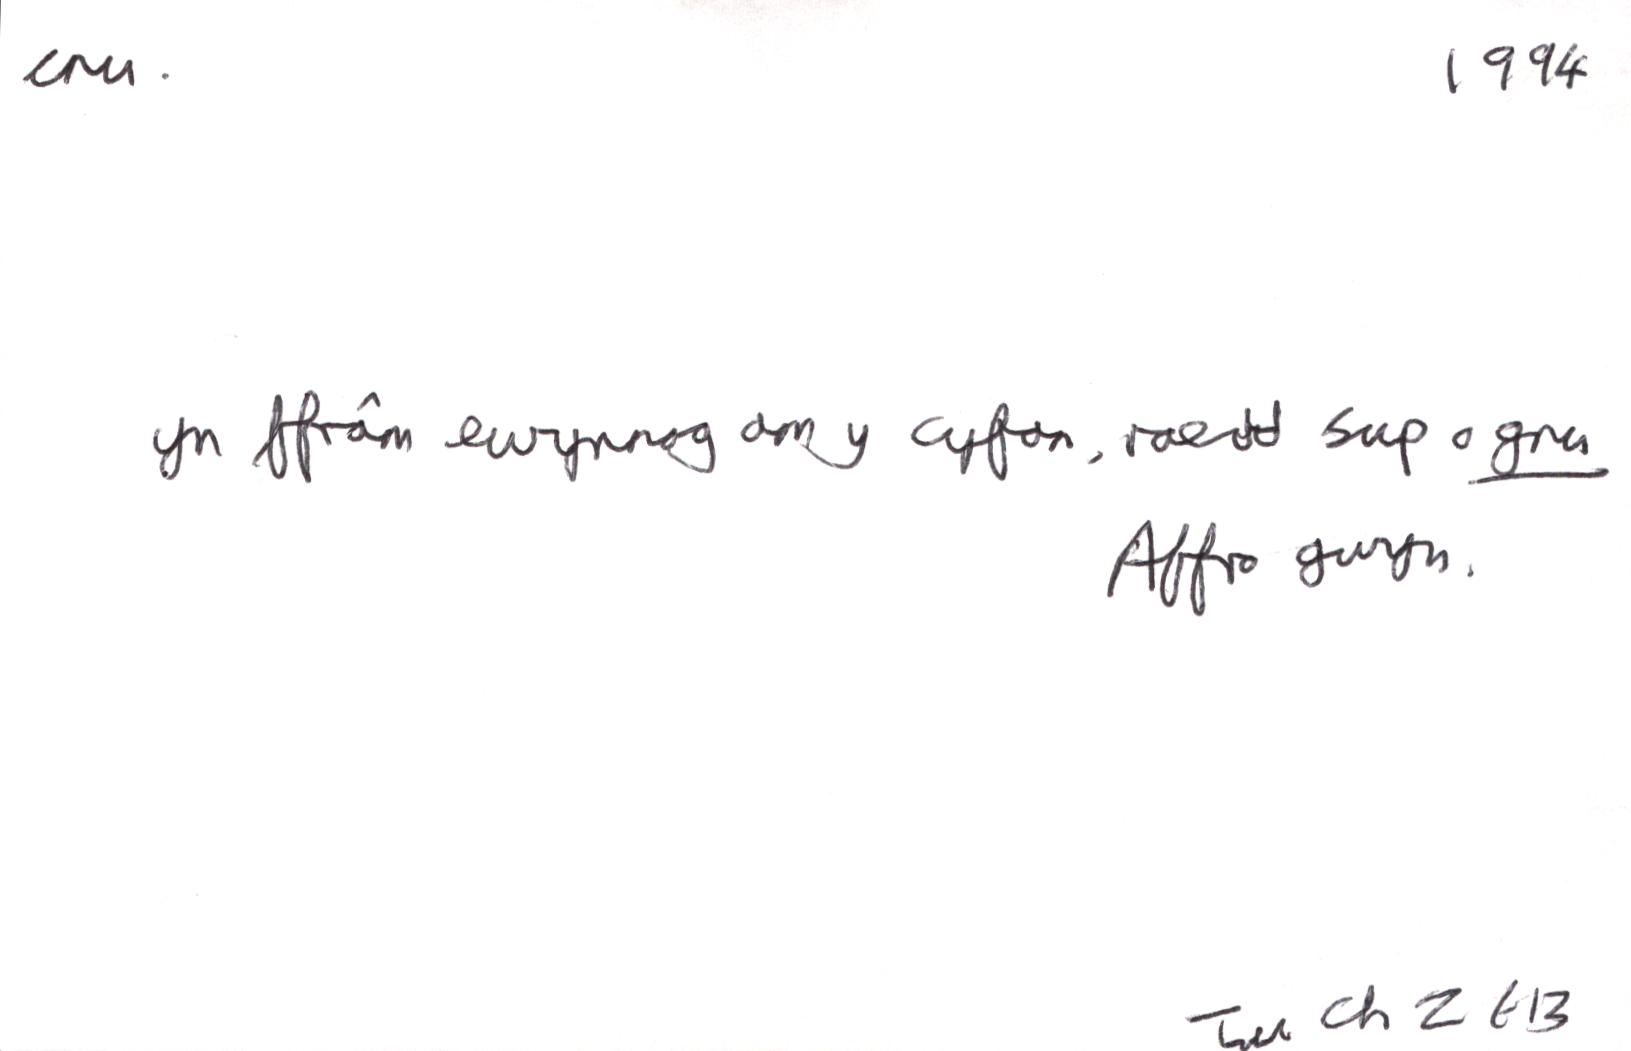 cnu. 1994
yn ffrâm ewynnog am y cyfan, roedd swp o gnu
Affro gwyn.
Ch 2 613